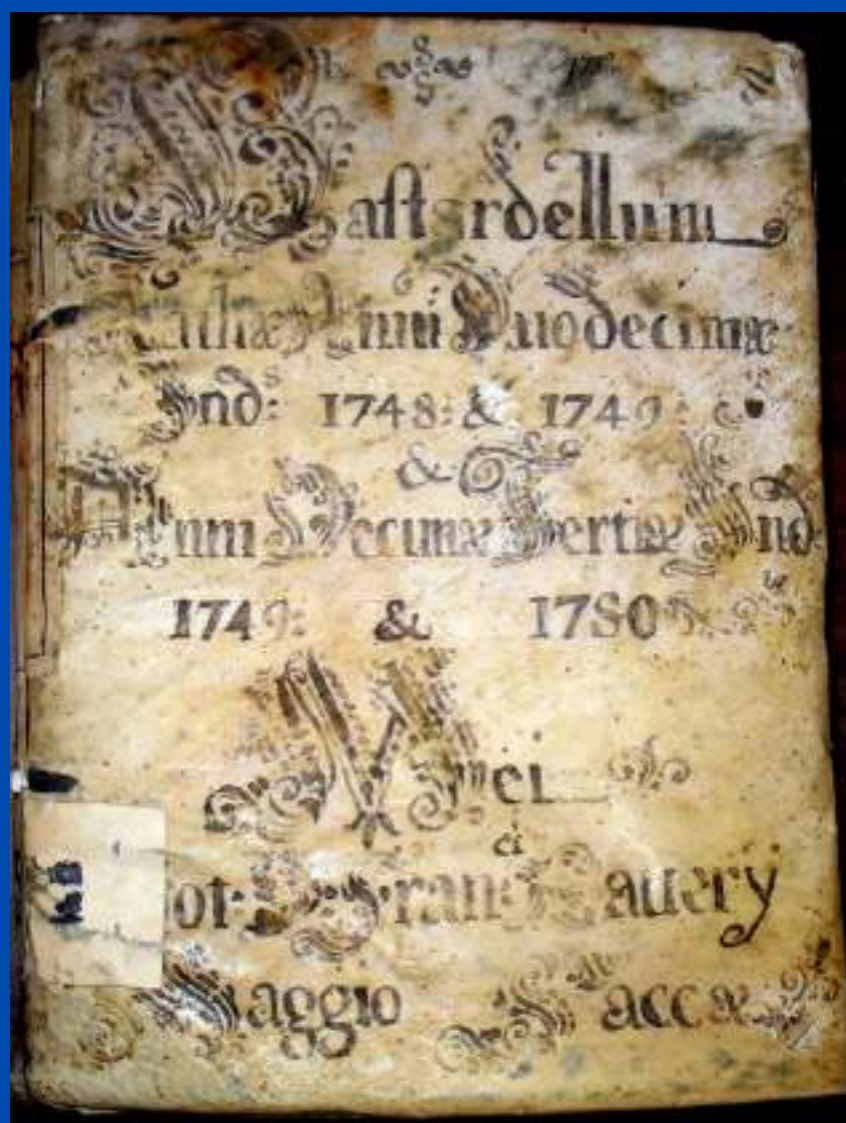 Bastardellum
Anni Duodecimæ
Ind: 1748: & 1749:
&
Anni Decimæ Tertiæ Ind:
1749: & 1750
Mei
Not: D: Fran: Xavery
Maggio Saccæ